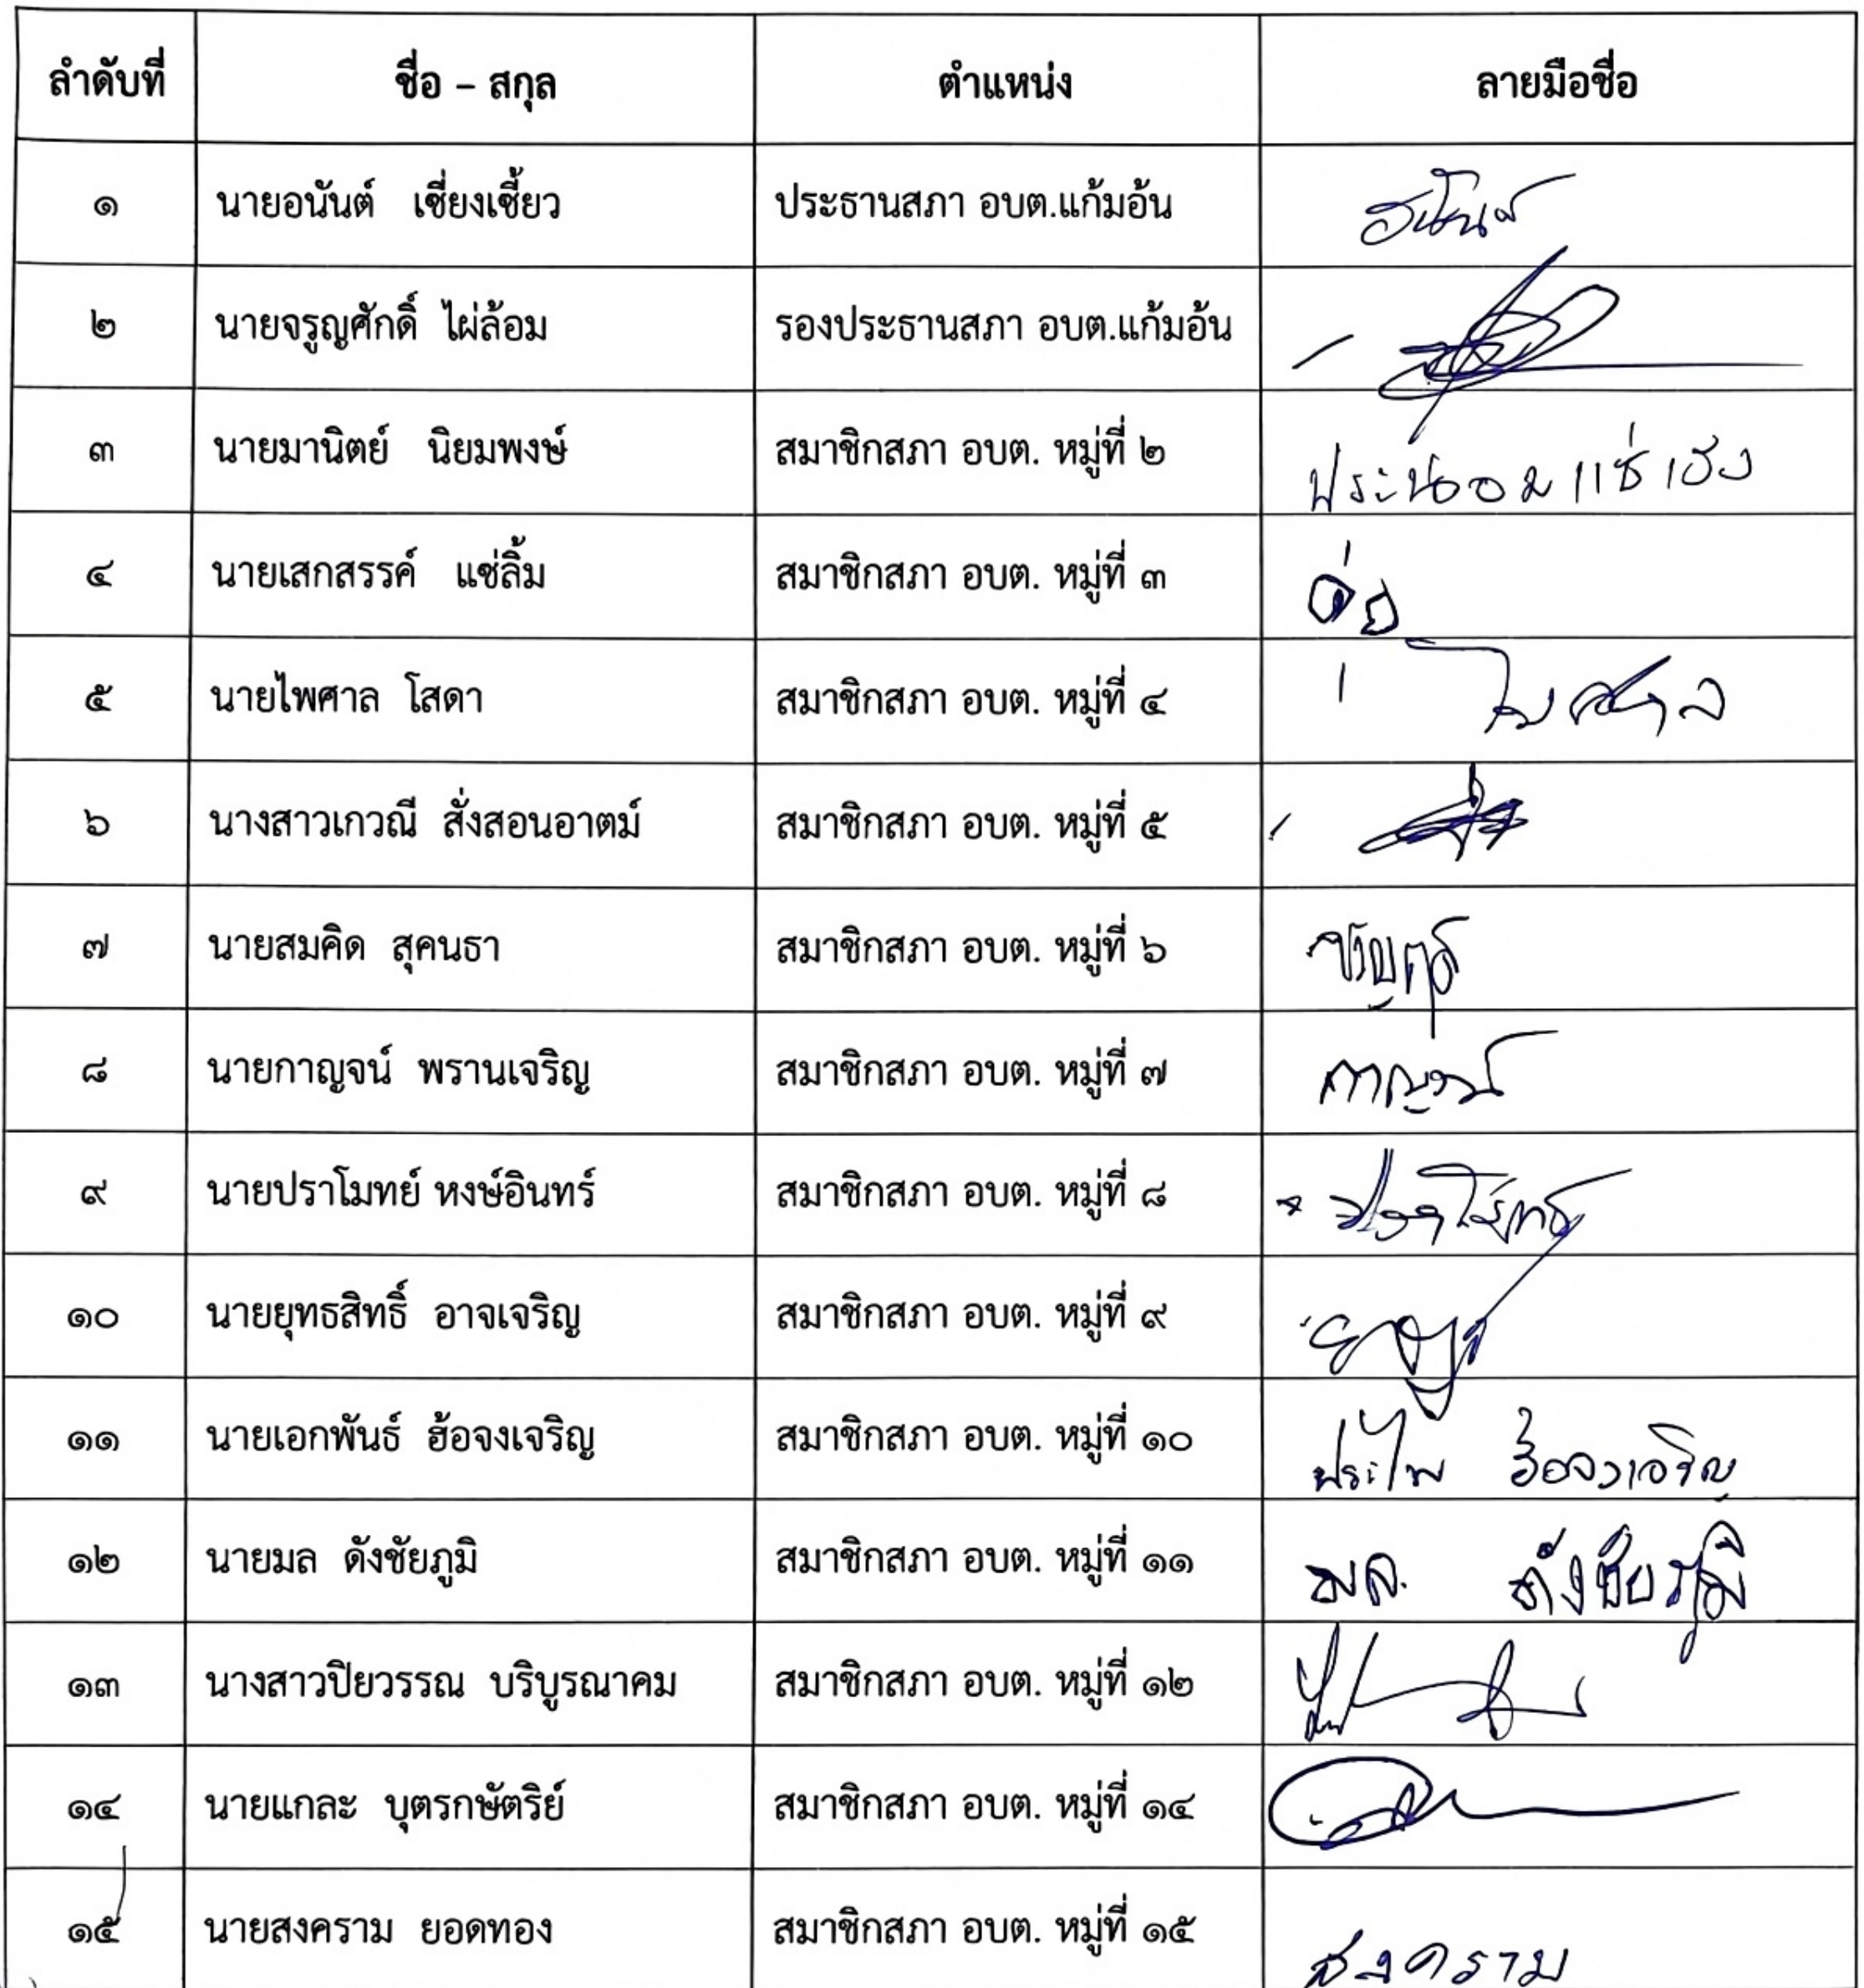 ลำดับที่ ชื่อ – สกุล ตำแหน่ง ลายมือชื่อ
๑ นายอนันต์ เซี่ยงเซี้ยว ประธานสภา อบต.แก้มอ้น อนันต์
๒ นายจรูญศักดิ์ ไผ่ล้อม รองประธานสภา อบต.แก้มอ้น
๓ นายมานิตย์ นิยมพงษ์ สมาชิกสภา อบต. หมู่ที่ ๒ ประนอม แซ่เฮง
๔ นายเสกสรรค์ แซ่ลิ้ม สมาชิกสภา อบต. หมู่ที่ ๓
๕ นายไพศาล โสดา สมาชิกสภา อบต. หมู่ที่ ๔ ไพศาล
๖ นางสาวเกวณี สั่งสอนอาตม์ สมาชิกสภา อบต. หมู่ที่ ๕
๗ นายสมคิด สุคนธา สมาชิกสภา อบต. หมู่ที่ ๖
๘ นายกาญจน์ พรานเจริญ สมาชิกสภา อบต. หมู่ที่ ๗ กาญจน์
๙ นายปราโมทย์ หงษ์อินทร์ สมาชิกสภา อบต. หมู่ที่ ๘ ปราโมทย์
๑๐ นายยุทธสิทธิ์ อาจเจริญ สมาชิกสภา อบต. หมู่ที่ ๙
๑๑ นายเอกพันธ์ ฮ้อจงเจริญ สมาชิกสภา อบต. หมู่ที่ ๑๐ ประไพ ฮ้อจงเจริญ
๑๒ นายมล ดังชัยภูมิ สมาชิกสภา อบต. หมู่ที่ ๑๑ มล ดังชัยภูมิ
๑๓ นางสาวปิยวรรณ บริบูรณาคม สมาชิกสภา อบต. หมู่ที่ ๑๒
๑๔ นายแกละ บุตรกษัตริย์ สมาชิกสภา อบต. หมู่ที่ ๑๔
๑๕ นายสงคราม ยอดทอง สมาชิกสภา อบต. หมู่ที่ ๑๕ สงคราม